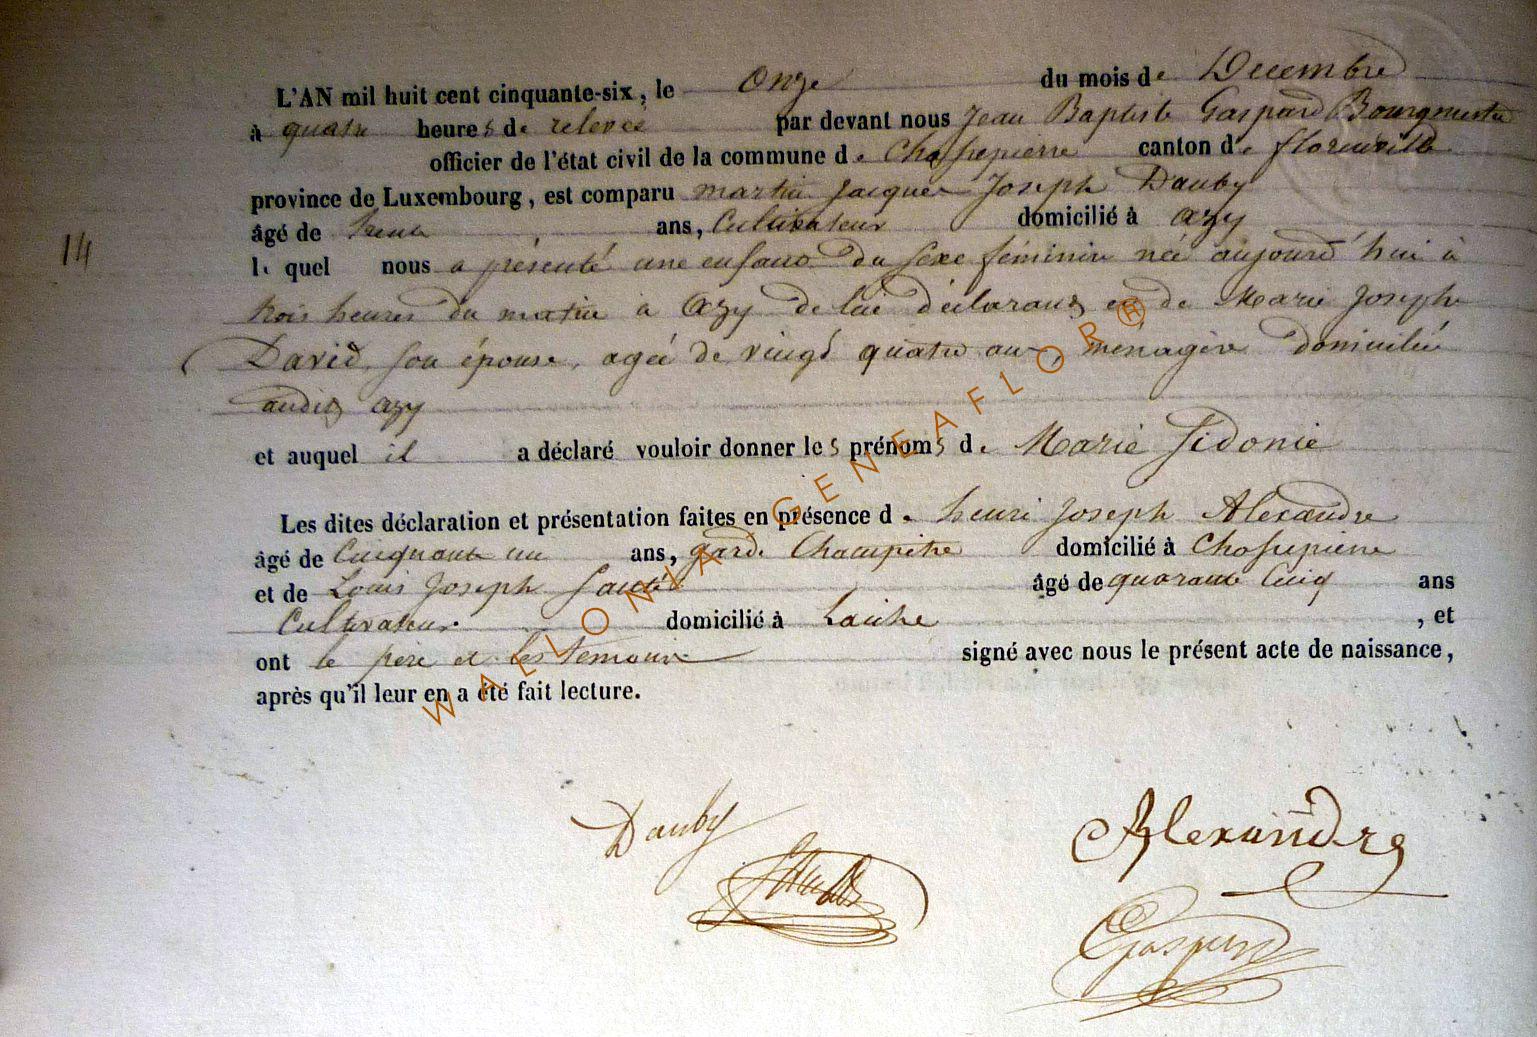 L'AN mil huit cent cinquante-six, le onze du mois de Decembre
à quatre heures de relevée par devant nous Jean Baptiste Gaspard Bourgmestre
officier de l'état civil de la commune de Chassepierre canton de florenville
province de Luxembourg, est comparu martin Jacques Joseph Dauby
âgé de trente ans, Cultivateur domicilié à azy
14
le quel nous a présenté une enfant du sexe féminin née aujourd'hui à
trois heures du matin à Azy de lui déclarant et de Marie Joseph
David, son épouse, agée de vingt quatre ans, ménagère domiciliée
audit azy
et auquel il a déclaré vouloir donner les prénoms de Marie Sidonie
Les dites déclaration et présentation faites en présence de henri Joseph Alexandre
âgé de Cinquante un ans, garde Champêtre domicilié à Chassepierre
et de Louis Joseph âgé de quarante Cinq ans
Cultivateur domicilié à Laiche, et
ont le père et les temoins signé avec nous le présent acte de naissance,
après qu'il leur en a été fait lecture.
WALLONIA GENEAFLOR®
Dauby
Alexandre
Gaspard